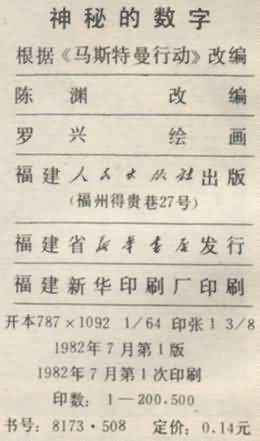 神秘的数字
根据《马斯特曼行动》改编
陈渊 改编
罗兴 绘画
福建人民出版社出版
(福州得贵巷27号)
福建省新华书店发行
福建新华印刷厂印刷
开本787×1092 1/64 印张1 3/8
1982年7月第1版
1982年7月第1次印刷
印数：1—200.500
书号：8173·508 定价：0.14元